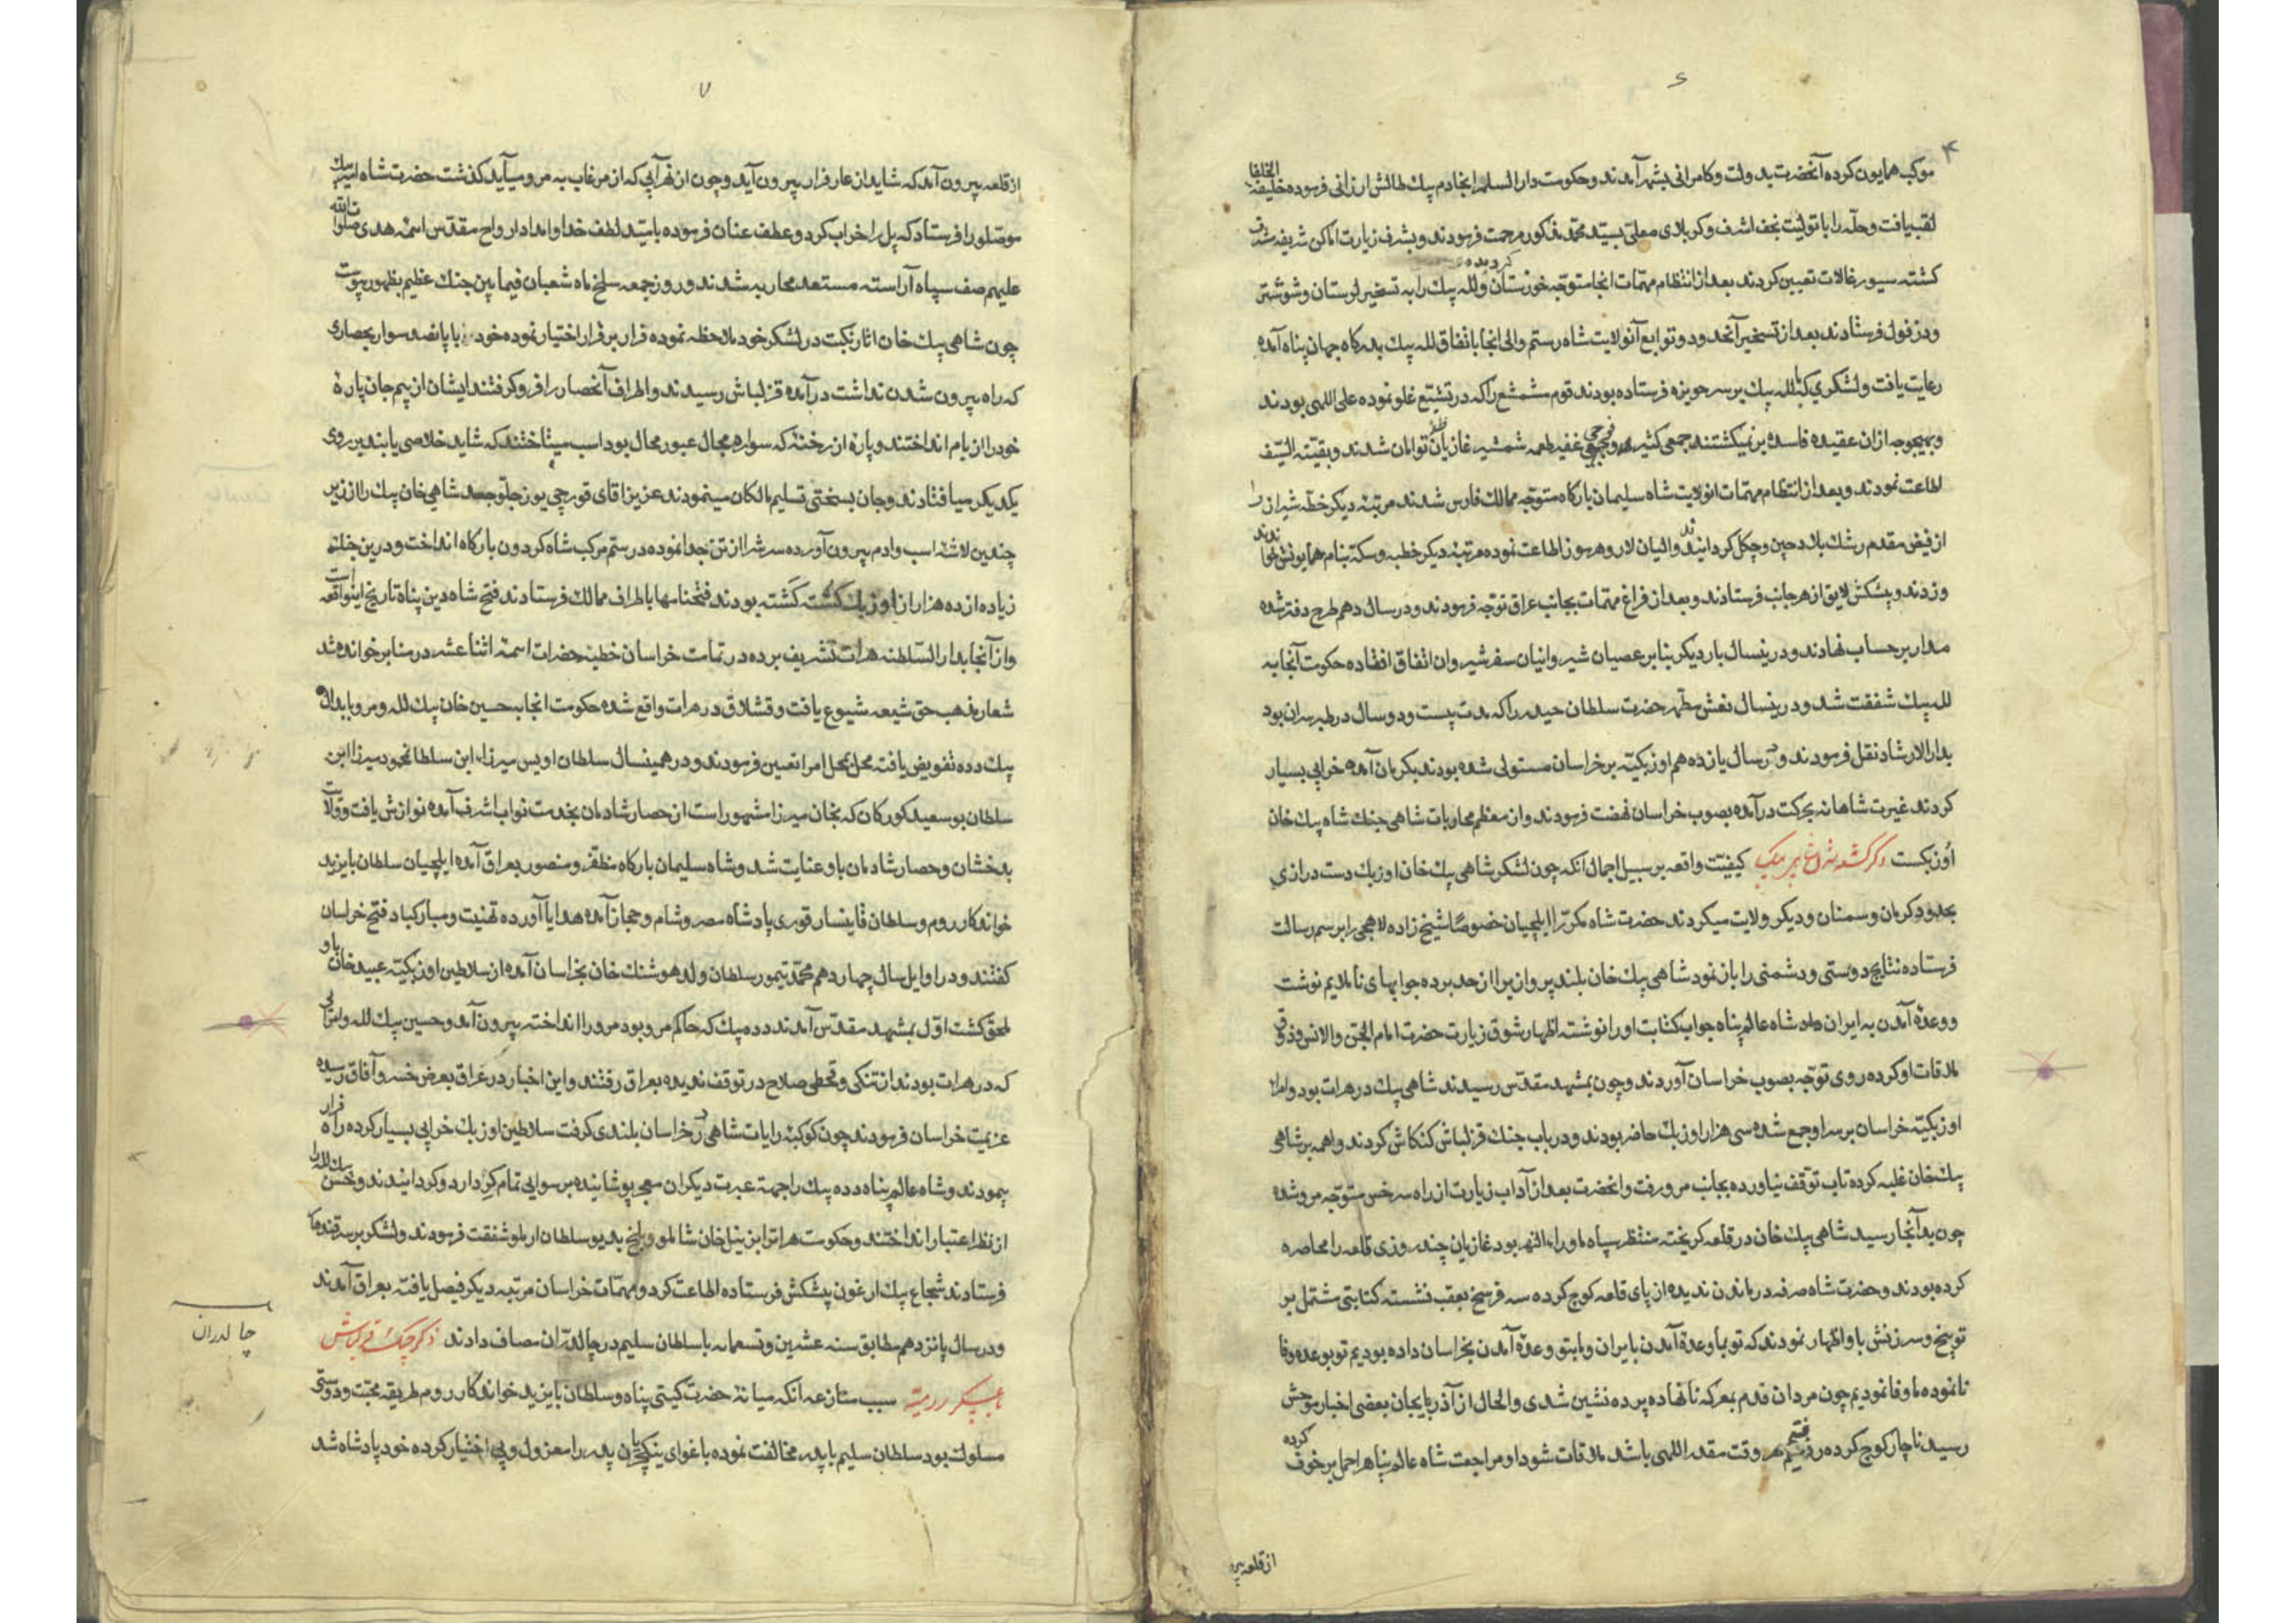 ۶
۴
موکب همایون کرده آنحضرت بدولت وکامرانی بشهر آمدند وحکومت دارالسلام انجا دم بیك طالش ارزانی فرموده خلیفة الخلفا
لقب یافت وحله را با تولیت نجف اشرف وکربلای معلی بسید محمد مذکور مرحمت فرمودند وبشرف زیارت اماکن شریفه مشرف
کشته سیورغالات تعیین کردند بعد از انتظام مهمات انجا متوجه خوزستان کردیده ولله بیك را به تسخیر لرستان وشوشتر
ودزفول فرستادند بعد از تسخیر آنحدود وتوابع آنولایت شاه رستم والی انجا باتفاق لله بیك بدرکاه جهان پناه آمده
رعایت یافت ولشکری که با لله بیك بر سر حویزه فرستاده بودند قوم مشعشع را که در تشیع غلو نموده علی اللهی بودند
وبهیچوجه ازان عقیده فاسده برنمیکشتند جمعی کثیر وجمی غفیر طعمه شمشیر غازیان توامان شدند وبقیة السیف
اطاعت نمودند وبعد از انتظام مهمات انولایت شاه سلیمان بارکاه متوجه ممالك فارس شدند مرتبهٔ دیکر خطهٔ شیراز را
از فیض مقدم رشك بلاد چین وچکل کردانیدند والیان لار وهرموز اطاعت نموده مرتبهٔ دیکر خطبه وسکه بنام همایونش خواندند
وزدند وپیشکش لایق از هر جانب فرستادند وبعد از فراغ مهمات بجانب عراق توجه فرمودند ودر سال دهم طرح دفتر شده
مدار بر حساب نهادند ودرینسال بار دیکر بنا بر عصیان شیروانیان سفر شیروان اتفاق افتاده حکومت آنجا به
لله بیك شفقت شد ودرینسال نعش مطهر حضرت سلطان حیدر را که مدت بیست ودو سال در طبرسران بود
بدارالارشاد نقل فرمودند ودر سال یازدهم اوزبکیه بر خراسان مستولی شده بودند بکرمان آمده خرابی بسیار
کردند غیرت شاهانه بحرکت درآمده بصوب خراسان نهضت فرمودند وان معظم محاربات شاهی جنك شاه بیك خان
اوزبکست کیفیت واقعه بر سبیل اجمال آنکه چون لشکر شاهی بیك خان اوزبك دست درازی
بحدود کرمان وسمنان ودیکر ولایت میکردند حضرت شاه مکررا ایلچیان خصوصا شیخ زاده لاهجی را برسم رسالت
فرستاده نتایج دوستی ودشمنی را باز نمود شاهی بیك خان بلند پروازیرا از حد برده جوابهای ناملایم نوشت
ووعدهٔ آمدن به ایران داد شاه عالم پناه جواب کتابت اورا نوشته اظهار شوق زیارت حضرت امام الجن والانس وذوق
ملاقات او کرده روی توجه بصوب خراسان آوردند وچون بمشهد مقدس رسیدند شاهی بیك در هرات بود وامرا
اوزبکیهٔ خراسان بر سر او جمع شده سی هزار اوزبك حاضر بودند ودرباب جنك قزلباش کنکاش کردند واهمه بر شاهی
بیك خان غلبه کرده تاب توقف نیاورده بجانب مرو رفت وانحضرت بعد از آداب زیارت از راه سرخس متوجه مرو شده
چون بدآنجا رسید شاهی بیك خان در قلعه کریخته منتظر سپاه ماوراء النهر بود غازیان چند روزی قلعه را محاصره
کرده بودند وحضرت شاه صرفه در ماندن ندیده از پای قلعه کوچ کرده سه فرسخ بعقب نشسته کتابتی مشتمل بر
توبیخ وسرزنش باو اظهار نمودند که تو بما وعدهٔ آمدن بایران ومابتو وعدهٔ آمدن بخراسان داده بودیم تو بوعده وفا
نانموده ما وفا نمودیم چون مردان قدم بمعرکه نانهاده پرده نشین شدی والحال از آذربایجان بعضی اخبار موحش
رسید ناچار کوچ کرده رفتیم هر وقت مقدر اللهی باشد ملاقات شود او مراجعت شاه عالم پناهرا حمل بر خوف کرده
از قلعه بیر
۷
از قلعه بیرون آمد که شاید از عار فرار بیرون آید وچون از نهر آبی که از مرغاب به مرو میآید کذشت حضرت شاه امیر بیك
موصلو را فرستاد که پل را خراب کرد وعطف عنان فرموده بامید لطف خدا وامداد ارواح مقدس ائمهٔ هدی صلوات الله
علیهم صف سپاه آراسته مستعد محاربه شدند وروز جمعه سلخ ماه شعبان فیمابین جنك عظیم بظهور پیوست
چون شاهی بیك خان اثار نکبت در لشکر خود ملاحظه نموده فرار بر قرار اختیار نموده خود با پانصد سوار بحصاری
که راه بیرون شدن نداشت درآمده قزلباش رسیدند واطراف آنحصار را فروکرفتند ایشان از بیم جان پارهٔ
خود را از بام انداختند وپارهٔ از رخنهٔ که سواره مجال عبور محال بود اسب میتاختند که شاید خلاصی یابند بر روی
یکدیکر میافتادند وجان بسختی تسلیم مالکان مینمودند عزیز اقای قورچی یوزجلو جسد شاهی خان بیك را از زیر
چندین لاشهٔ اسب وادم بیرون آورده سرش را از تن جدا نموده در سم مرکب شاه کردون بارکاه انداخت ودرین جنك
زیاده از ده هزار از اوزبك کشته بودند فتحنامها باطراف ممالك فرستادند فتح شاه دین پناه تاریخ اینواقعه است
وازآنجا بدارالسلطنه هرات تشریف برده در تمامت خراسان خطبهٔ حضرات ائمهٔ اثنا عشر در منابر خوانده شد
شعار مذهب حق شیعه شیوع یافت وقشلاق در هرات واقع شده حکومت انجا به حسین خان بیك لله ومرو بابدال
بیك دده تفویض یافته محل بمحل امرا تعین فرمودند ودر همینسال سلطان اویس میرزا ابن سلطان محمود میرزا ابن
سلطان بوسعید کورکان که بخان میرزا مشهور است از حصار شادمان بخدمت نواب اشرف آمده نوازش یافت وولایت
بدخشان وحصار شادمان باو عنایت شد وشاه سلیمان بارکاه مظفر ومنصور بعراق آمده ایلچیان سلطان بایزید
خواندکار روم وسلطان قاینسار قوری پادشاه مصر وشام وحجاز آمده هدایا آورده تهنیت ومبارکباد فتح خراسان
کفتند ودر اوایل سال چهاردهم محمد تیمور سلطان ولد هوشنك خان بخراسان آمده از سلاطین اوزبکیه عبید خان باو
ملحق کشت اول بمشهد مقدس آمدند دده بیك که حاکم مرو بود مرو را انداخته بیرون آمد وحسین بیك لله وامرائی
که در هرات بودند از تنکی وقحطی صلاح در توقف ندیده بعراق رفتند واین اخبار در عراق بعرض خسرو آفاق رسیده
عزیمت خراسان فرمودند چون کوکبهٔ رایات شاهی در خراسان بلندی کرفت سلاطین اوزبك خرابی بسیار کرده راه فرار
پیمودند وشاه عالم پناه دده بیك را جهة عبرت دیکران معجر پوشانیده برسوایی تمام کرد اردو کردانیدند وحسن بیك لله را
از نظر اعتبار انداختند وحکومت هراترا بزینل خان شاملو وبلخ بدیو سلطان ارلمو شفقت فرمودند ولشکر بر سر قندهار
فرستادند شجاع بیك ارغون پیشکش فرستاده اطاعت کرد ومهمات خراسان مرتبه دیکر فیصل یافته بعراق آمدند
ودر سال پانزدهم مطابق سنه عشرین وتسعمایه با سلطان سلیم در چالدران مصاف دادند ذکر جنك قزلباش
با عسکر رومیه سبب منازعه آنکه میانهٔ حضرت کیتی پناه وسلطان بایزید خواندکار روم طریقه محبت ودوستی
مسلوك بود سلطان سلیم با پدر مخالفت نموده باغوای ینکچریان پدر را معزول وپی اختیار کرده خود پادشاه شد
چالدران